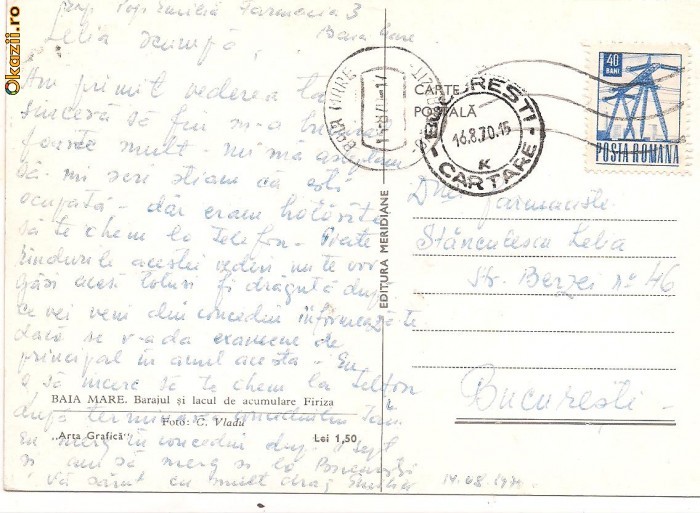 Okazii.ro
Farmacia 3
Baia Mare
Lelia scumpă,
Am primit vederea ta
sinceră să fiu m-a bucurat
foarte mult nu mă așteptam
să-mi scrii știam că ești
ocupată - dar eram hotărîtă
să te chem la telefon - Poate
rîndurile acestei vederi nu te vor
găsi acasă totuși fi dragută după
ce vei veni din concediu informează-te
dacă se v-a da examene de
principal în anul acesta - Eu
o să încerc să te chem la telefon
după terminarea concediului
Eu merg în concediu după 1 sept
și am să merg și la București
Vă sărut cu mult drag
BAIA MARE. Barajul și lacul de acumulare Firiza
Foto: C. Vladu
„Arta Grafică”
Lei 1,50
EDITURA MERIDIANE
CARTE
POȘTALĂ
BAIA MARE
BUCUREȘTI
16.8.70.15
K
CARTARE
40
BANI
POSTA ROMANA
Dnei farmaciste
Stănculescu Lelia
Str. Berzei no 46
București
14.08.1970